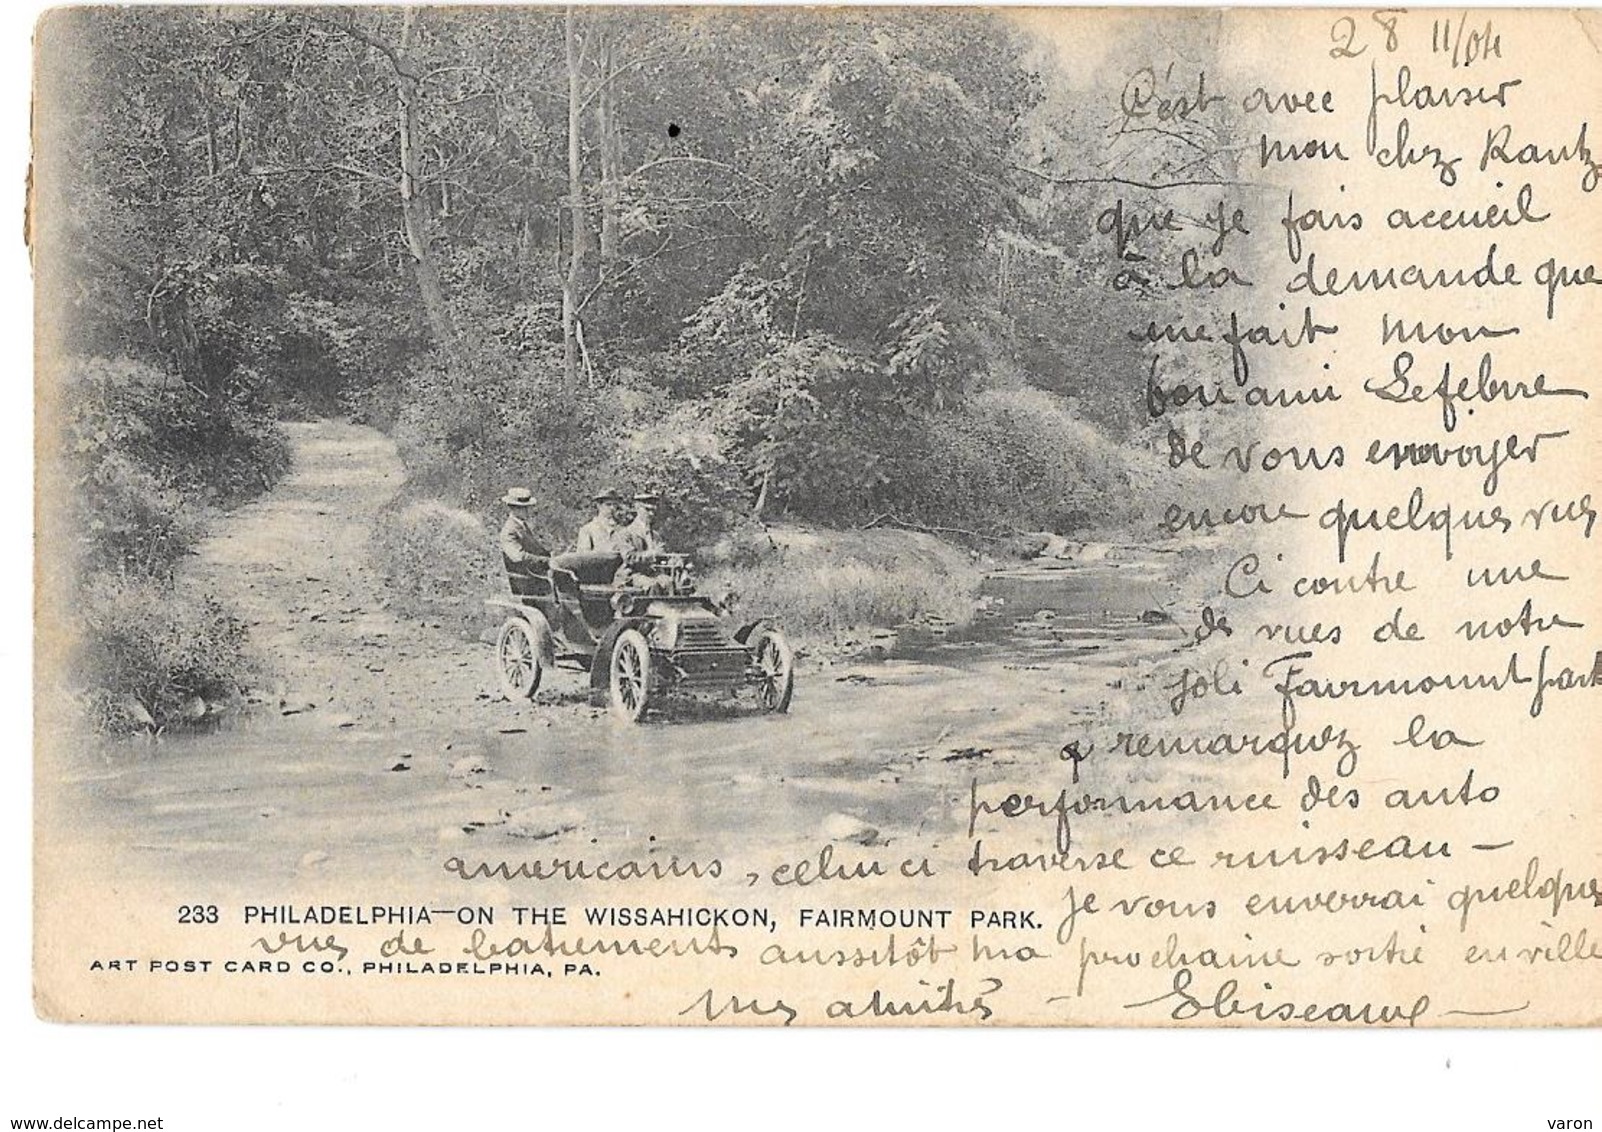 28 11/04
C'est avec plaisir
mon chez Kantz
que je fais accueil
à la demande que
me fait mon
bon ami Lefebvre
de vous envoyer
encore quelques vues
Ci contre une
des vues de notre
joli Fairmount park
remarquez la
performance des auto
americains, celui ci traverse ce ruisseau —
Je vous enverrai quelques
233 PHILADELPHIA—ON THE WISSAHICKON, FAIRMOUNT PARK.
vues de batiements aussitôt ma prochaine sortie en ville
ART POST CARD CO., PHILADELPHIA, PA.
mes amitiés —
www.delcampe.net
varon